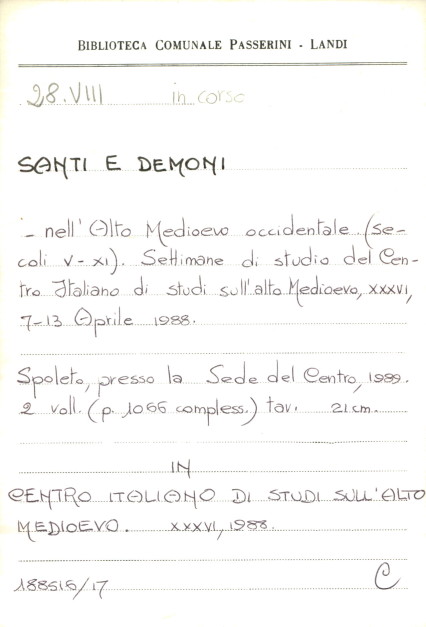 BIBLIOTECA COMUNALE PASSERINI - LANDI
28.VIII in corso
SANTI E DEMONI
- nell'Alto Medioevo occidentale (se-
coli V - XI). Settimane di studio del Cen-
tro Italiano di studi sull'alto Medioevo, XXXVI,
7-13 Aprile 1988.
Spoleto, presso la Sede del Centro, 1989.
2 voll. (p. 1066 compless.) tav. 21 cm.
IN
CENTRO ITALIANO DI STUDI SULL'ALTO
MEDIOEVO. XXXVI, 1988.
188515/17 C